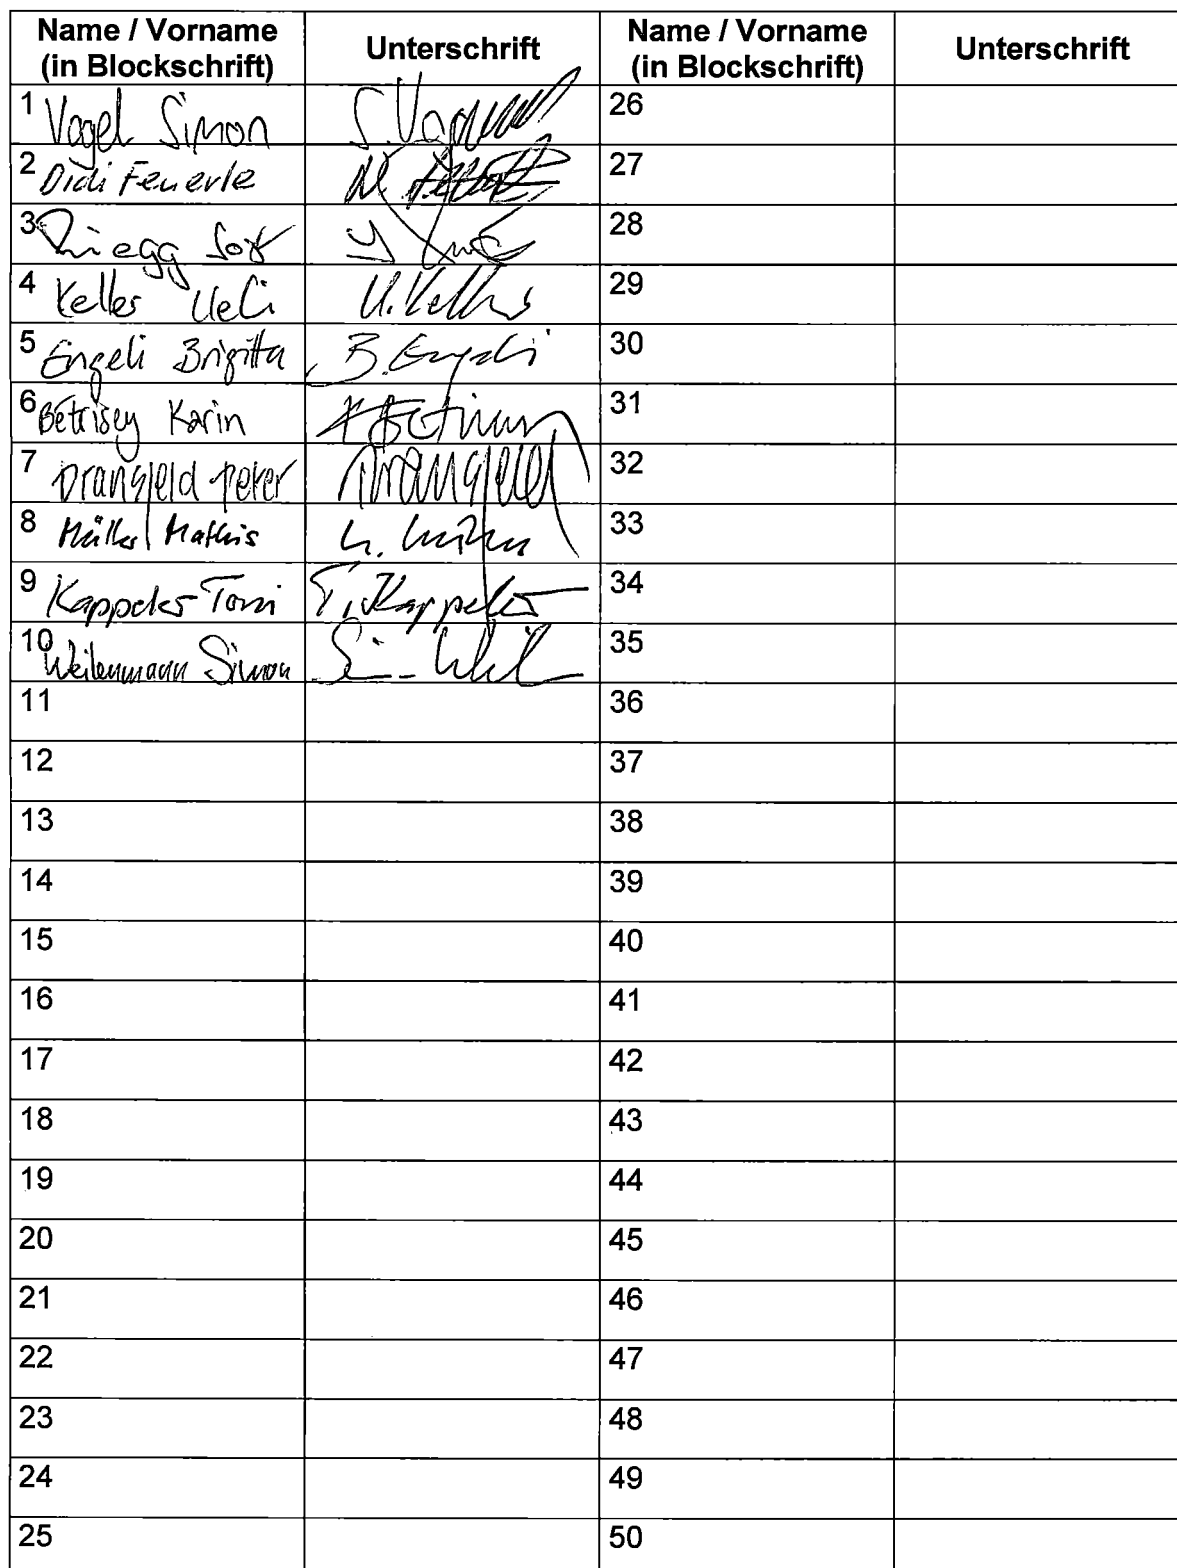 Name / Vorname (in Blockschrift) Unterschrift Name / Vorname (in Blockschrift) Unterschrift
1 Vogel Simon S. Vogel 26
2 Didi Feuerle 27
3 28
4 Keller Ueli U. Keller 29
5 Engeli Brigitta B. Engeli 30
6 Bétrisey Karin 31
7 Drangfeld Peter Drangfeld 32
8 Müller Mathis 33
9 Kappeler Toni T. Kappeler 34
10 Weilenmann Simon 35
11 36
12 37
13 38
14 39
15 40
16 41
17 42
18 43
19 44
20 45
21 46
22 47
23 48
24 49
25 50